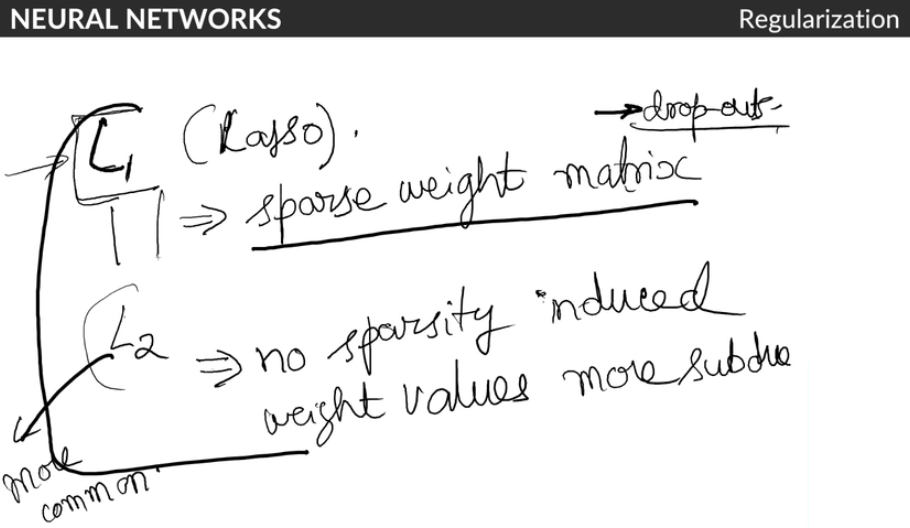 NEURAL NETWORKS
Regularization
→ drop-outs.
L1 (Lasso).
|| ⇒ sparse weight matrix
L2 ⇒ no sparsity induced
weight values more subdue
more
common